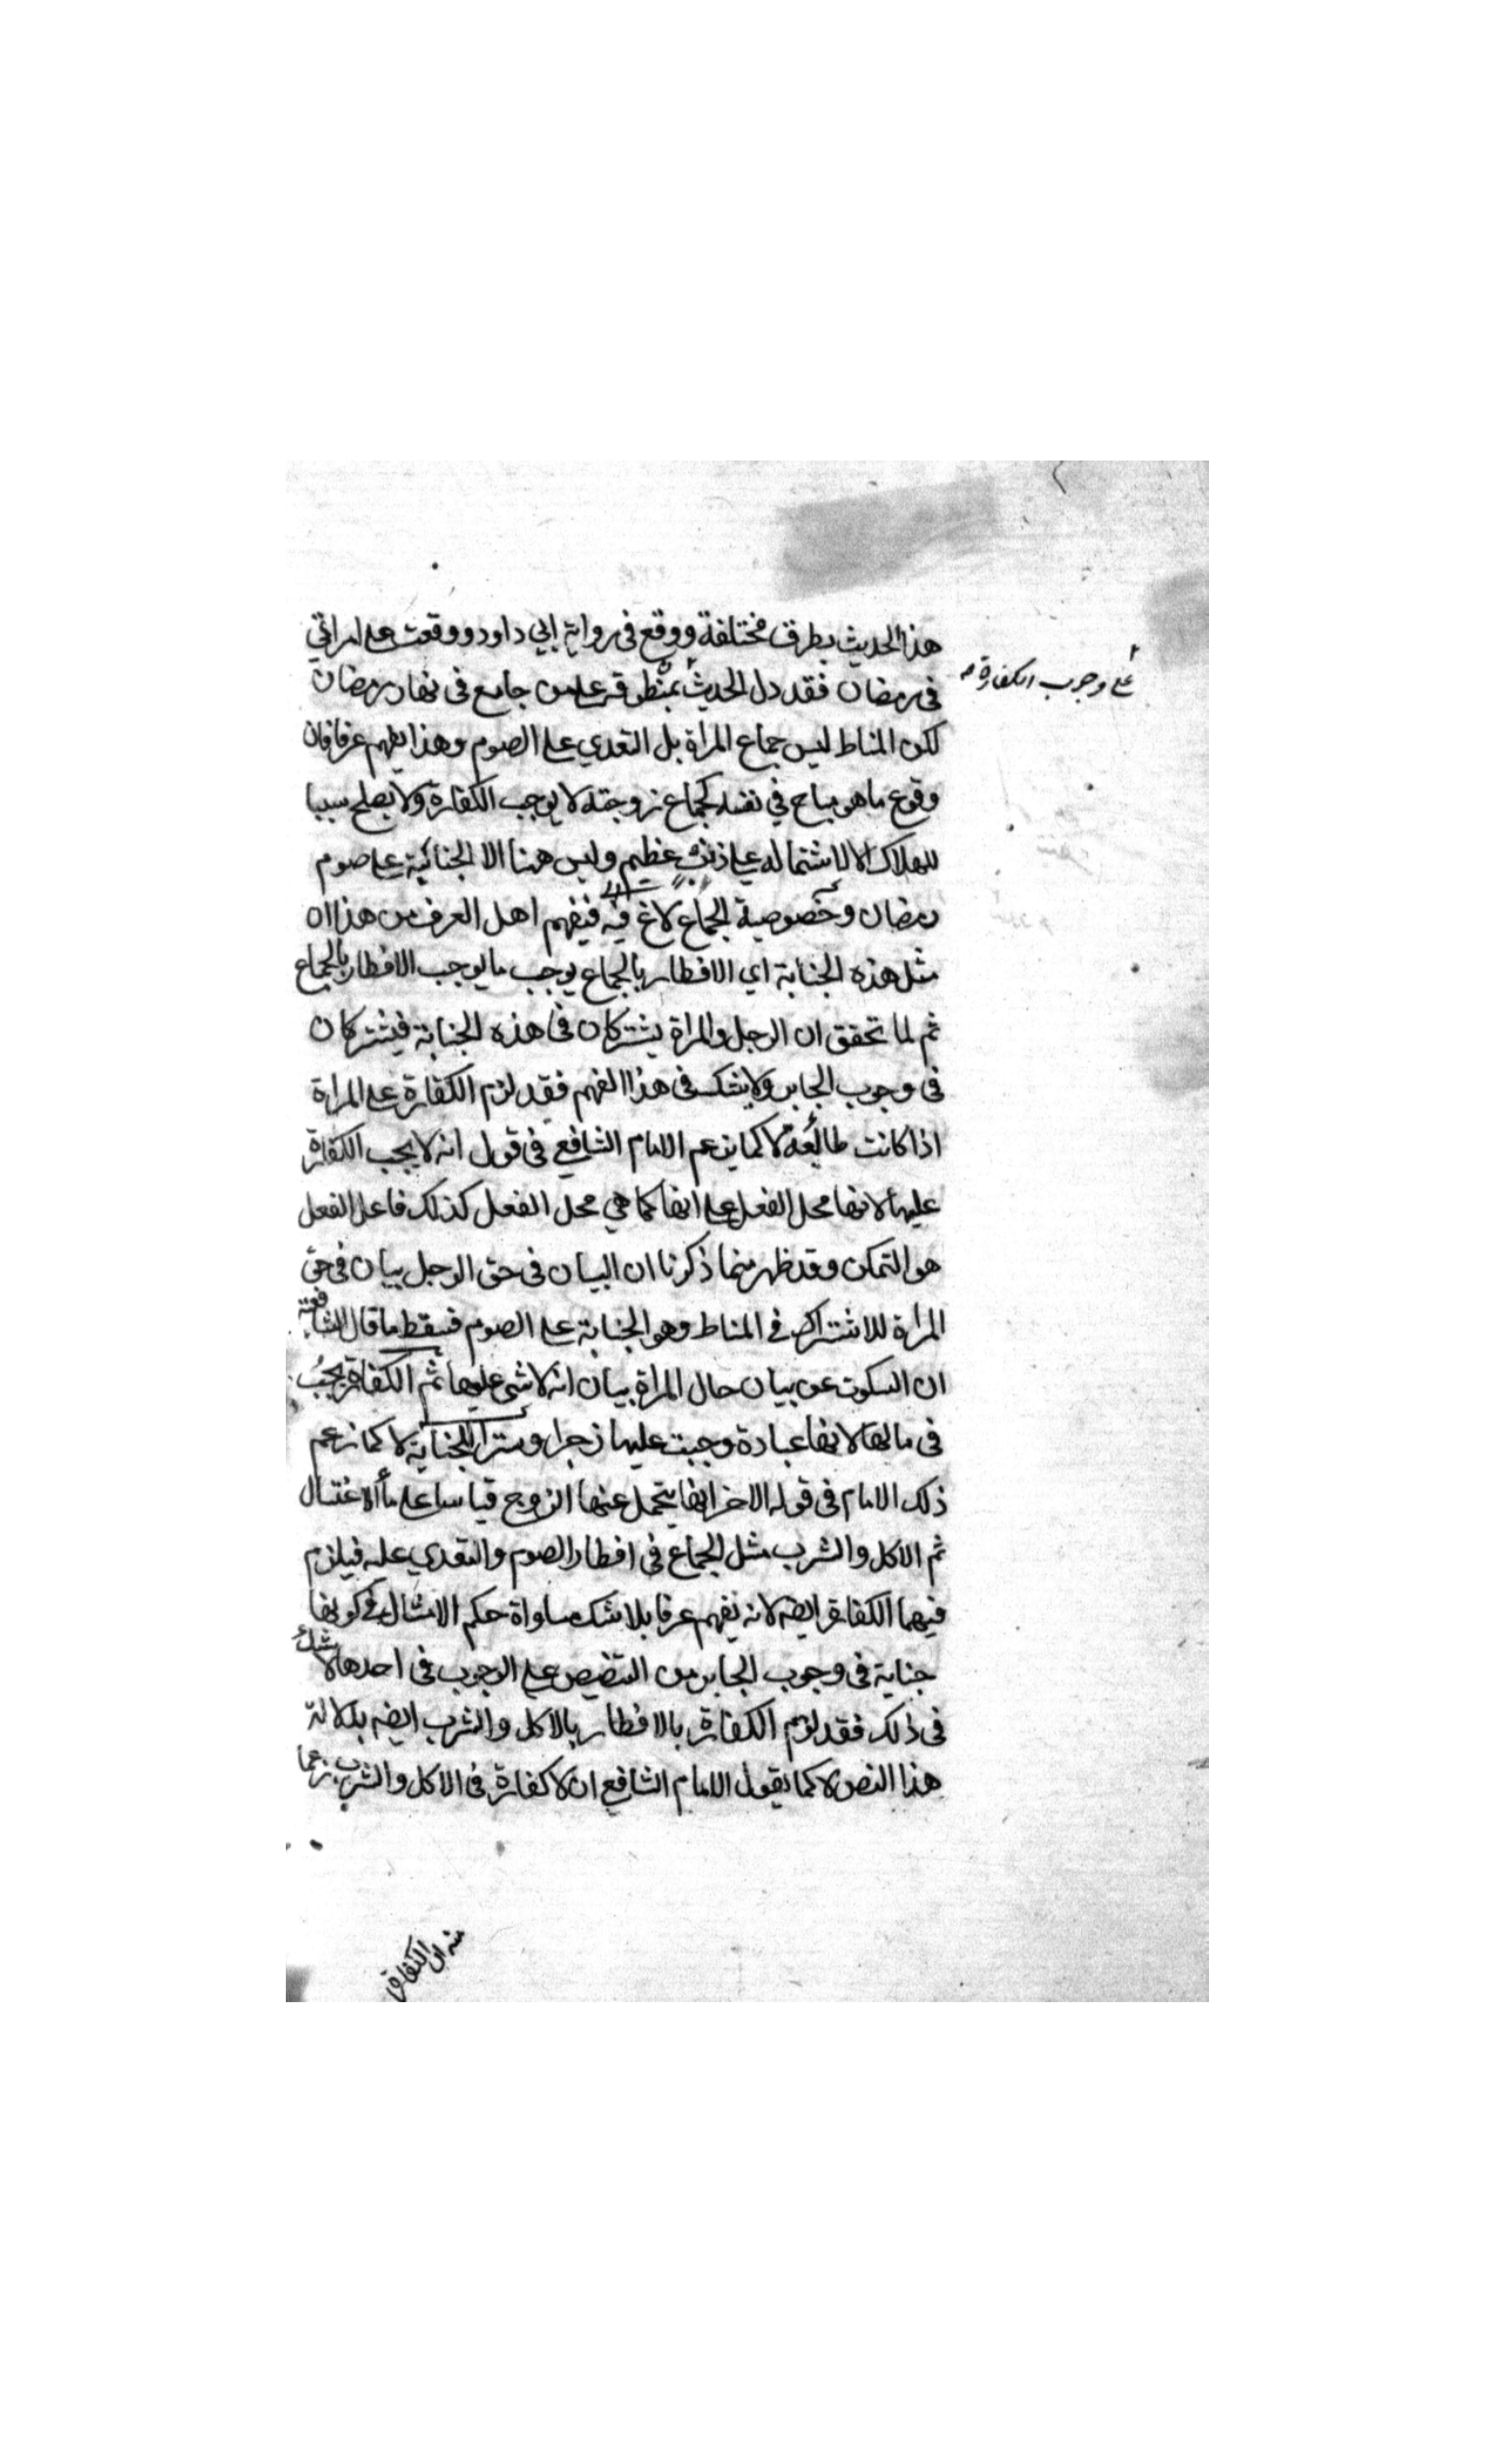 هذا الحديث بطرق مختلفة ووقع في رواية ابي داود ووقعت على امراتي
في رمضان فقد دل الحديث بمنطوقه على من جامع في نهار رمضان
على وجوب الكفارة
لكن المناط ليس جماع المراة بل التعدي على الصوم وهذا يفهم عرفا فان
وقوع ما هو مباح في نفسه كجماع زوجته لا يوجب الكفارة ولا يصلح سببا
للهلاك الا لاشتماله على ذنب عظيم وليس ههنا الا الجناية على صوم
رمضان وخصوصية الجماع لاغ فيه فيفهم اهل العرف من هذا ان
مثل هذه الجناية اي الافطار بالجماع يوجب ما يوجب الافطار بالجماع
ثم لما تحقق ان الرجل والمراة يشتركان في هذه الجناية فيشتركان
في وجوب الجابر ولا يشك في هذا الفهم فقد لزم الكفارة على المراة
اذا كانت طائعة لا كما يزعم الامام الشافعي في قول انه لا يجب الكفارة
عليها لانها محل الفعل على انها كما هي محل الفعل كذلك فاعل الفعل
هو التمكن وقد ظهر مما ذكرنا ان البيان في حق الرجل بيان في حق
المراة للاشتراك في المناط وهو الجناية على الصوم فسقط ما قال الشافعية
ان السكوت عن بيان حال المراة بيان انه لا شي عليها ثم الكفارة يجب
في مالها لانها عبادة وجبت عليها زجرا وسترا للجناية لا كما زعم
ذلك الامام في قوله الاخر انها يتحمل عنها الزوج قياسا على ماء الاغتسال
ثم الاكل والشرب مثل الجماع في افطار الصوم والتعدي عليه فيلزم
فيهما الكفارة ايضه لانه يفهم عرفا بلا شك مساواة حكم الامثال في كونها
جناية في وجوب الجابر من التنصيص على الوجوب في احدها لا شك
في ذلك فقد لزم الكفارة بالافطار بالاكل والشرب ايضه بدلالة
هذا النص لا كما يقول الامام الشافعي ان لا كفارة في الاكل والشرب زعما
منه ان الكفارة